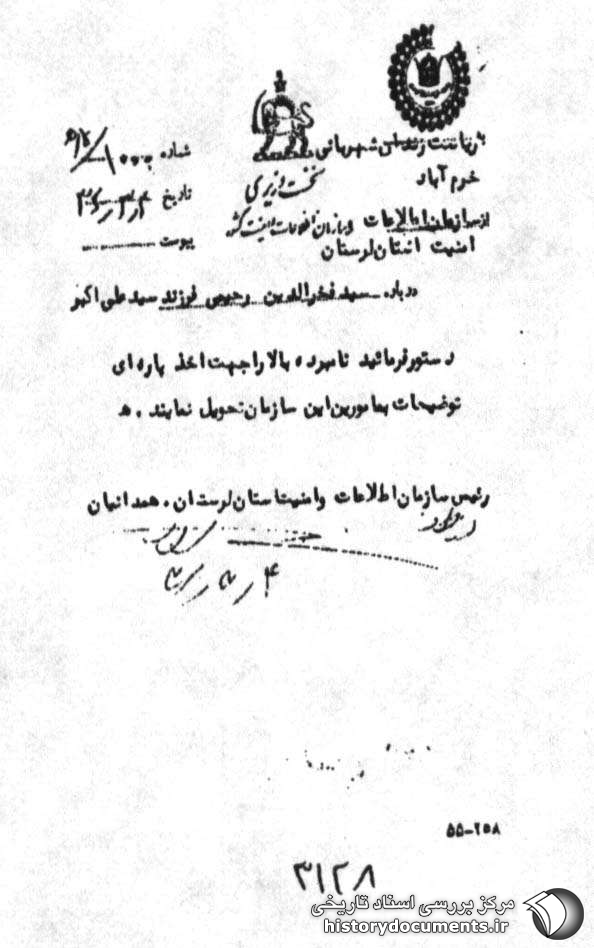 به ریاست زندان شهربانی
خرم آباد
نخست وزیری
سازمان اطلاعات و امنیت کشور
از سازمان اطلاعات و
امنیت استان لرستان
شماره
تاریخ
پیوست
درباره سید فخرالدین رحیمی فرزند سید علی اکبر
دستور فرمائید نامبرده بالا را جهت اخذ پاره ای
توضیحات بمامورین این سازمان تحویل نمایند . ه
رئیس سازمان اطلاعات و امنیت استان لرستان . همدانیان
۵۵-۲۵۸
۳۱۲۸
مرکز بررسی اسناد تاریخی
historydocuments.ir